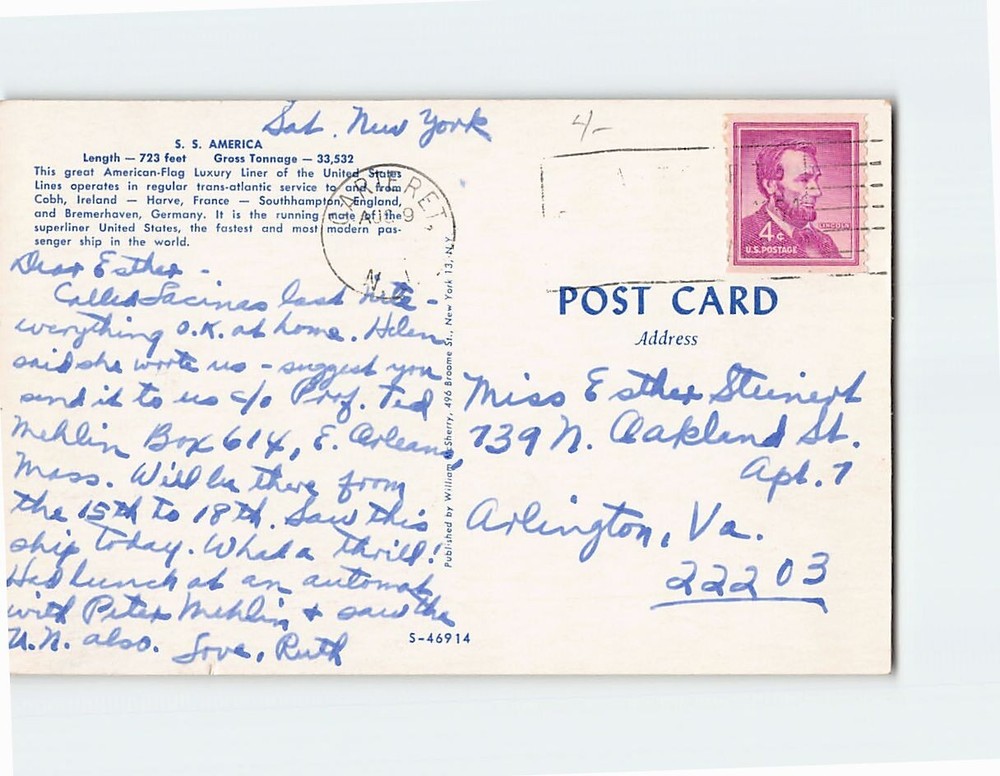 Sat. New York
4/-
S. S. AMERICA
Length — 723 feet Gross Tonnage — 33,532
This great American-Flag Luxury Liner of the United States
Lines operates in regular trans-atlantic service to and from
Cobh, Ireland — Harve, France — Southhampton, England,
and Bremerhaven, Germany. It is the running mate of the
superliner United States, the fastest and most modern pas-
senger ship in the world.
Dear Esther -
Called Sacinas last nite -
everything O.K. at home. Helen
said she wrote us - suggest you
send it to us c/o Prof. Ted
Mehlin Box 614, E. Orleans,
Mass. Will be there from
the 15th to 18th. Saw this
ship today. What a thrill!
Had lunch at an automat
with Peter Mehlin & saw the
U.N. also. Love, Ruth
CARTERET,
AUG 9
N. J.
Published by William McSherry, 496 Broome St., New York 13, N.Y.
S-46914
LINCOLN
4¢
U.S. POSTAGE
POST CARD
Address
Miss Esther Steinert
739 N. Oakland St.
Apt. 7
Arlington, Va.
22203